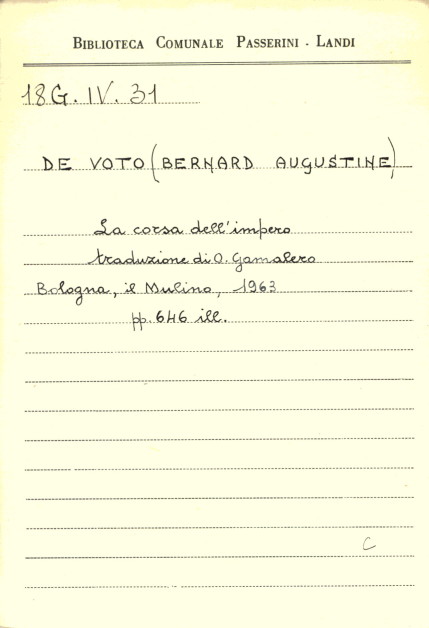 BIBLIOTECA COMUNALE PASSERINI - LANDI
18G. IV. 31
DE VOTO (BERNARD AUGUSTINE)
La corsa dell'impero
traduzione di O. Gamalero
Bologna, il Mulino, 1963
pp. 646 ill.
C